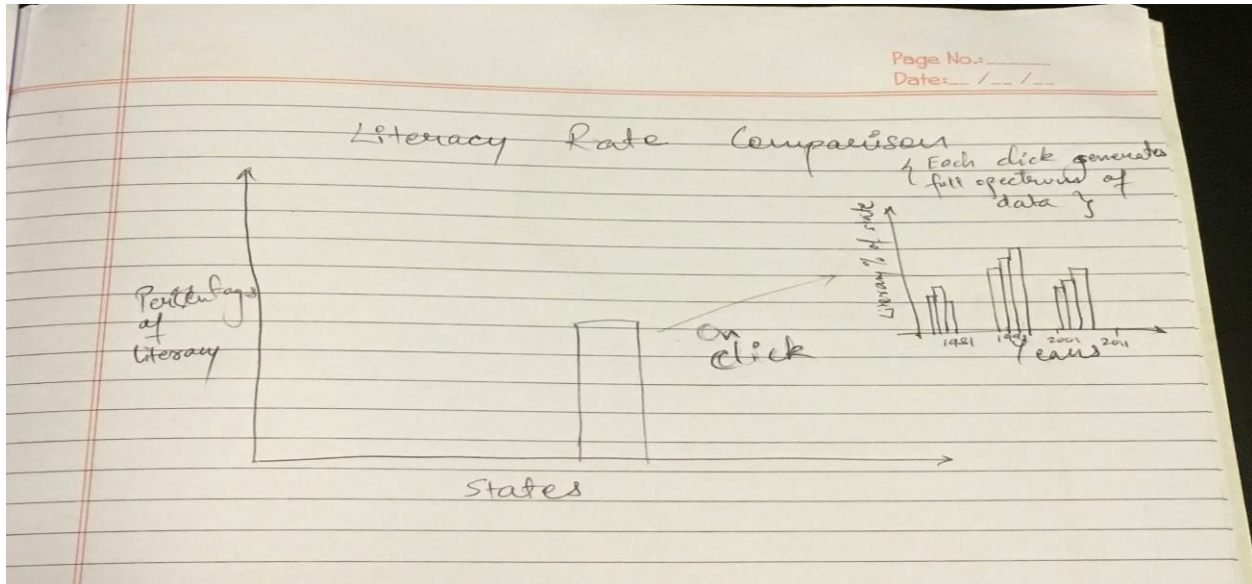 Page No.:
Date: / /
Literacy Rate Comparison
{ Each click generates
full spectrum of
data }
Literary % of rate
1981 1991 2001 2011
Years
Percentage
of
literacy
On
click
States